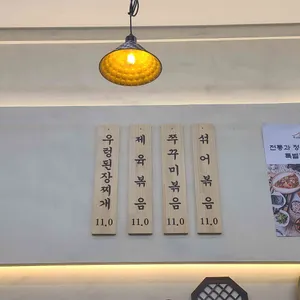 우렁된장찌개
11.0
제육볶음
11.0
쭈꾸미볶음
11.0
섞어볶음
11.0
전통과 정
특별